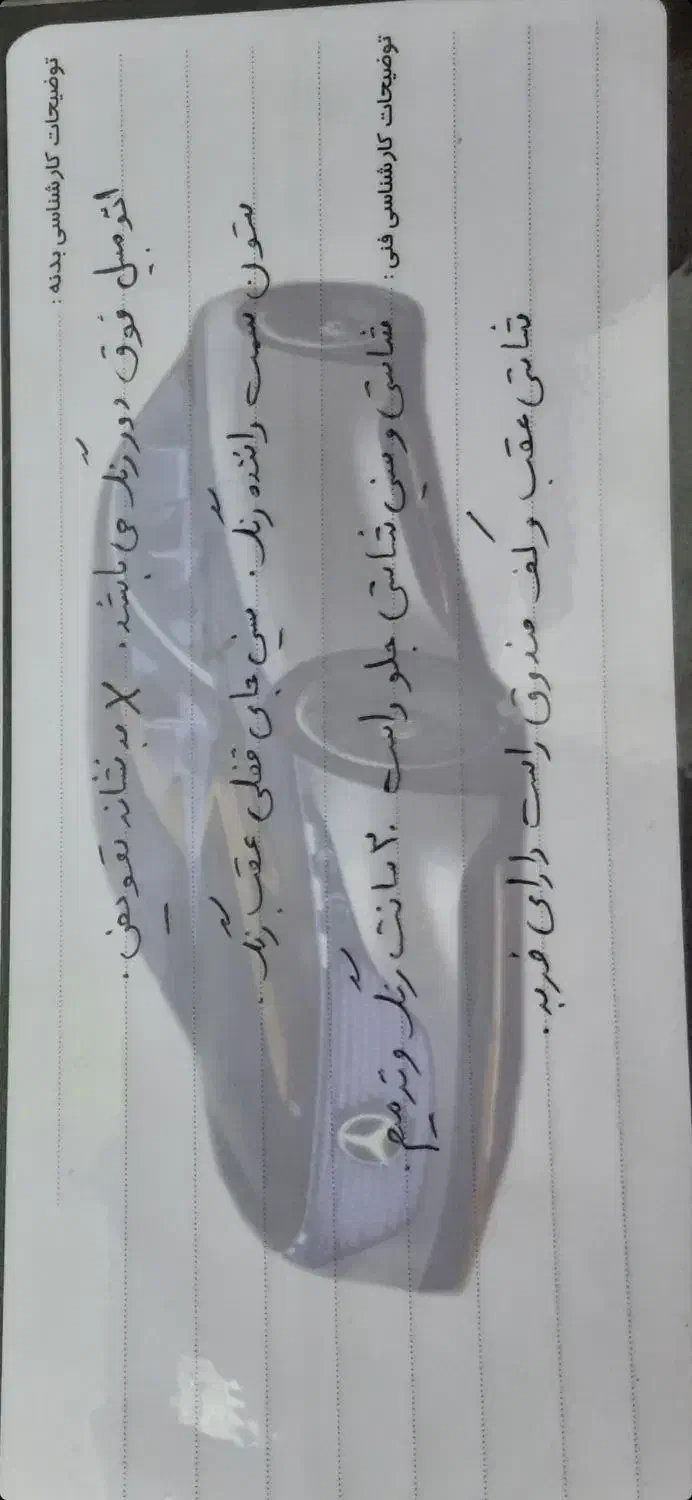 توضیحات کارشناسی بدنه :
اتومبیل فوق دور رنگ می باشد. X به نشانه تعویض.
ستون سمت راننده رنگ. سینی جای قفلی عقب رنگ.
توضیحات کارشناسی فنی :
شاسی و سینی شاسی جلو راست ۳۰ سانت رنگ و ترمیم.
شاسی عقب و کف صندوق راست دارای ضربه.